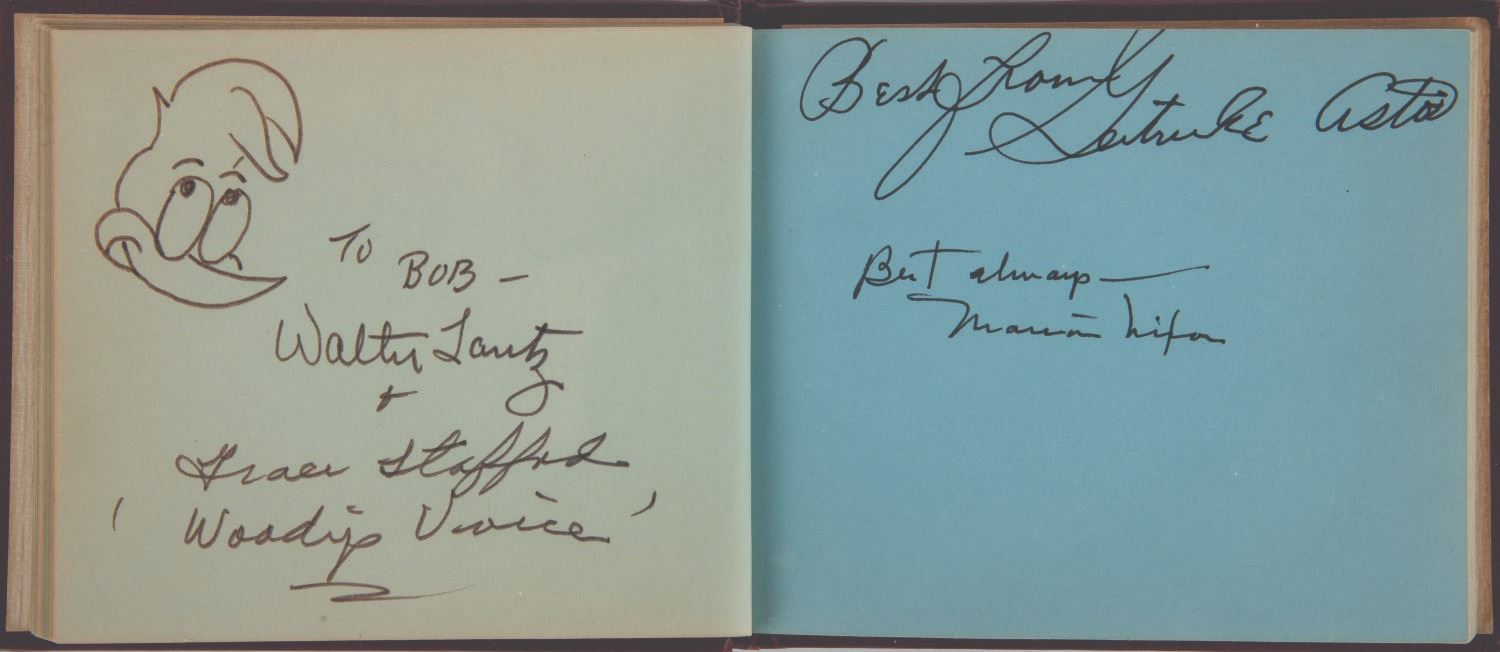 To BOB –
Walter Lantz
+
Grace Stafford
(Woody's Voice)
Best from
Gertrude Astor
Best always —
Marian Nixon